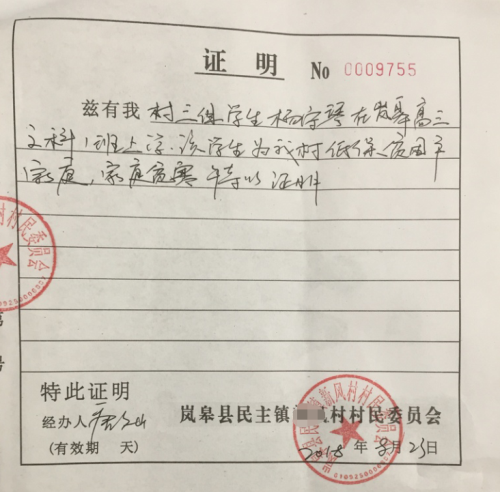 证 明 No 0009755
兹有我村三组学生杨宗琴在岚皋高三
文科1班上学.该学生为我村低保、贫困户
家庭,家庭贫寒 特以证明
村村民委员会
特此证明
经办人
岚皋县民主镇 村村民委员会
(有效期 天)
2018年8月23日